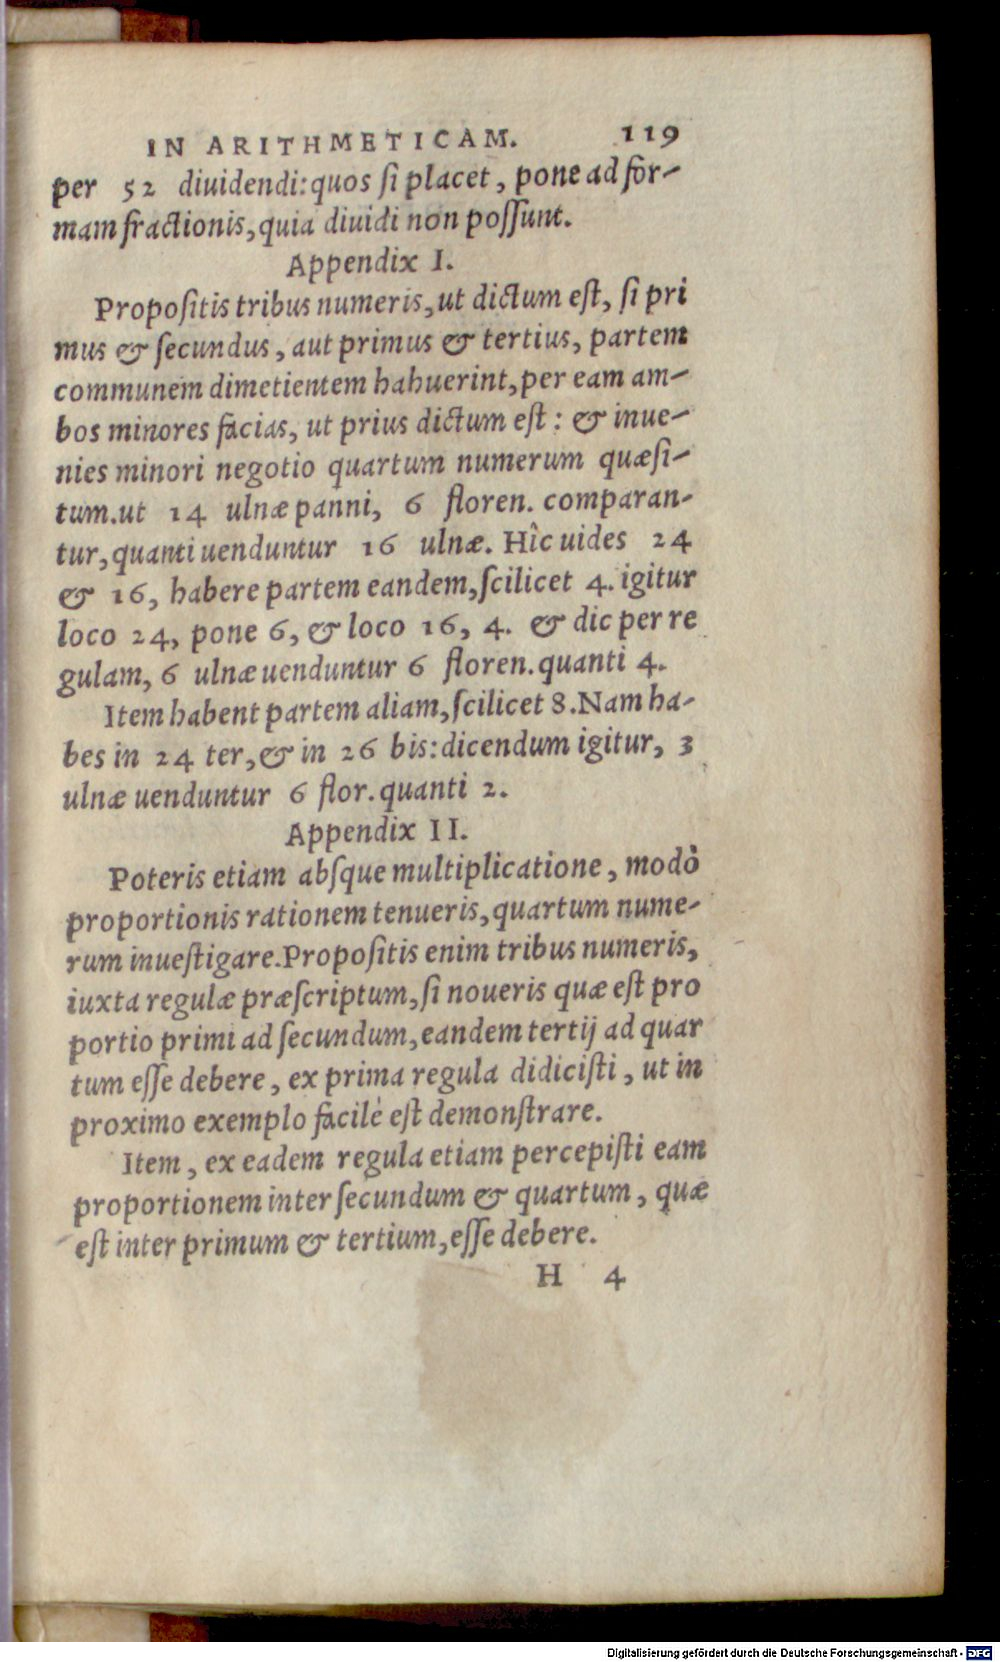 IN ARITHMETICAM. 119
per 52 diuidendi: quos si placet, pone ad for-
mam fractionis, quia diuidi non possunt.
Appendix I.
Propositis tribus numeris, ut dictum est, si pri
mus & secundus, aut primus & tertius, partem
communem dimetientem hahuerint, per eam am-
bos minores facias, ut prius dictum est: & inue-
nies minori negotio quartum numerum quæsi-
tum. ut 14 ulnæ panni, 6 floren. comparan-
tur, quanti uenduntur 16 ulnæ. Hîc uides 24
& 16, habere partem eandem, scilicet 4. igitur
loco 24, pone 6, & loco 16, 4. & dic per re
gulam, 6 ulnæ uenduntur 6 floren. quanti 4.
Item habent partem aliam, scilicet 8. Nam ha-
bes in 24 ter, & in 26 bis: dicendum igitur, 3
ulnæ uenduntur 6 flor. quanti 2.
Appendix II.
Poteris etiam absque multiplicatione, modò
proportionis rationem tenueris, quartum nume-
rum inuestigare. Propositis enim tribus numeris,
iuxta regulæ præscriptum, si noueris quæ est pro
portio primi ad secundum, eandem tertij ad quar
tum esse debere, ex prima regula didicisti, ut in
proximo exemplo facilè est demonstrare.
Item, ex eadem regula etiam percepisti eam
proportionem inter secundum & quartum, quæ
est inter primum & tertium, esse debere.
H 4
Digitalisierung gefördert durch die Deutsche Forschungsgemeinschaft - DFG